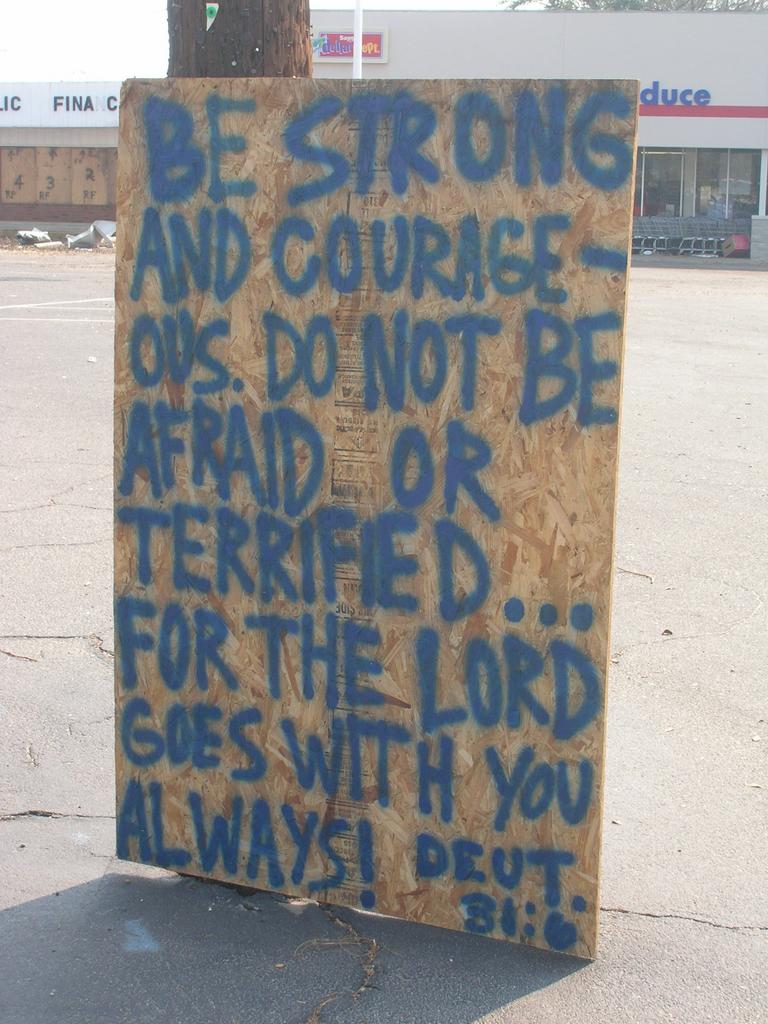 LIC FINANC
duce
4 3 2
RF RF RF
BE STRONG
AND COURAGE-
OUS. DO NOT BE
AFRAID OR
TERRIFIED...
FOR THE LORD
GOES WITH YOU
ALWAYS! DEUT.
31:6